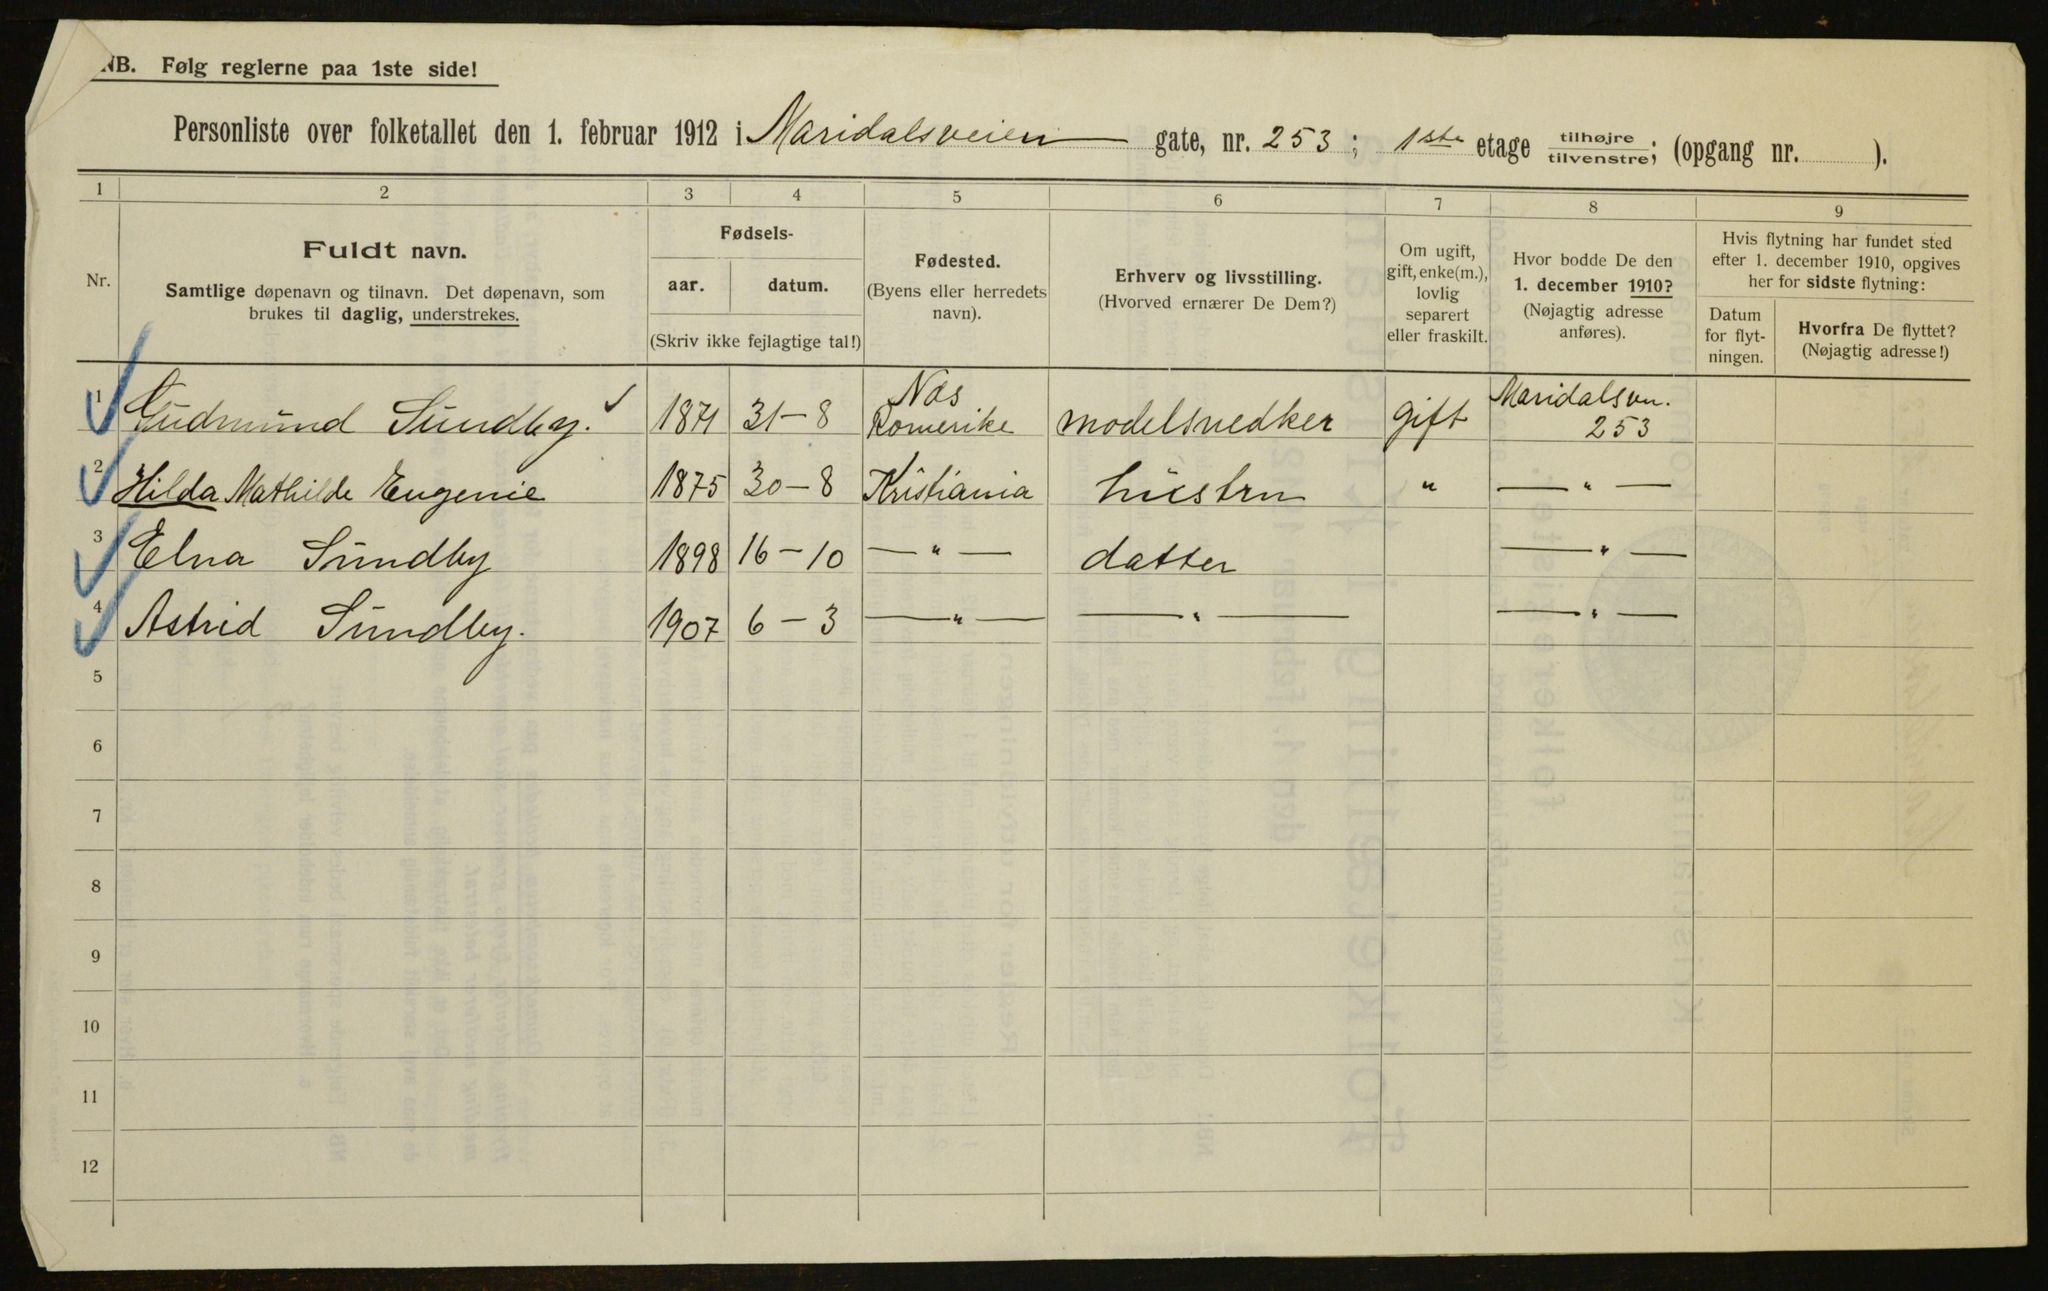 NB. Følg reglerne paa 1ste side!
Personliste over folketallet den 1. februar 1912 i Maridalsveien gate, nr. 253; 1ste etage tilhøjre tilvenstre; (opgang nr. ).
1 2 3 4 5 6 7 8 9
Nr.
Fuldt navn.
Samtlige døpenavn og tilnavn. Det døpenavn, som
brukes til daglig, understrekes.
Fødsels-
aar. datum.
(Skriv ikke fejlagtige tal!)
Fødested.
(Byens eller herredets
navn).
Erhverv og livsstilling.
(Hvorved ernærer De Dem?)
Om ugift,
gift, enke(m.),
lovlig
separert
eller fraskilt.
Hvor bodde De den
1. december 1910?
(Nøjagtig adresse
anføres).
Hvis flytning har fundet sted
efter 1. december 1910, opgives
her for sidste flytning:
Datum
for flyt-
ningen.
Hvorfra De flyttet?
(Nøjagtig adresse!)
1 Gudmund Sundby. 1871 31-8 Nes Romerike modelsnedker gift Maridalsvn. 253
2 Hilda Mathilde Eugenie 1875 30-8 Kristiania hustru " — " —
3 Elna Sundby 1898 16-10 — " — datter — " —
4 Astrid Sundby. 1907 6-3 — " — — " — — " —
5
6
7
8
9
10
11
12